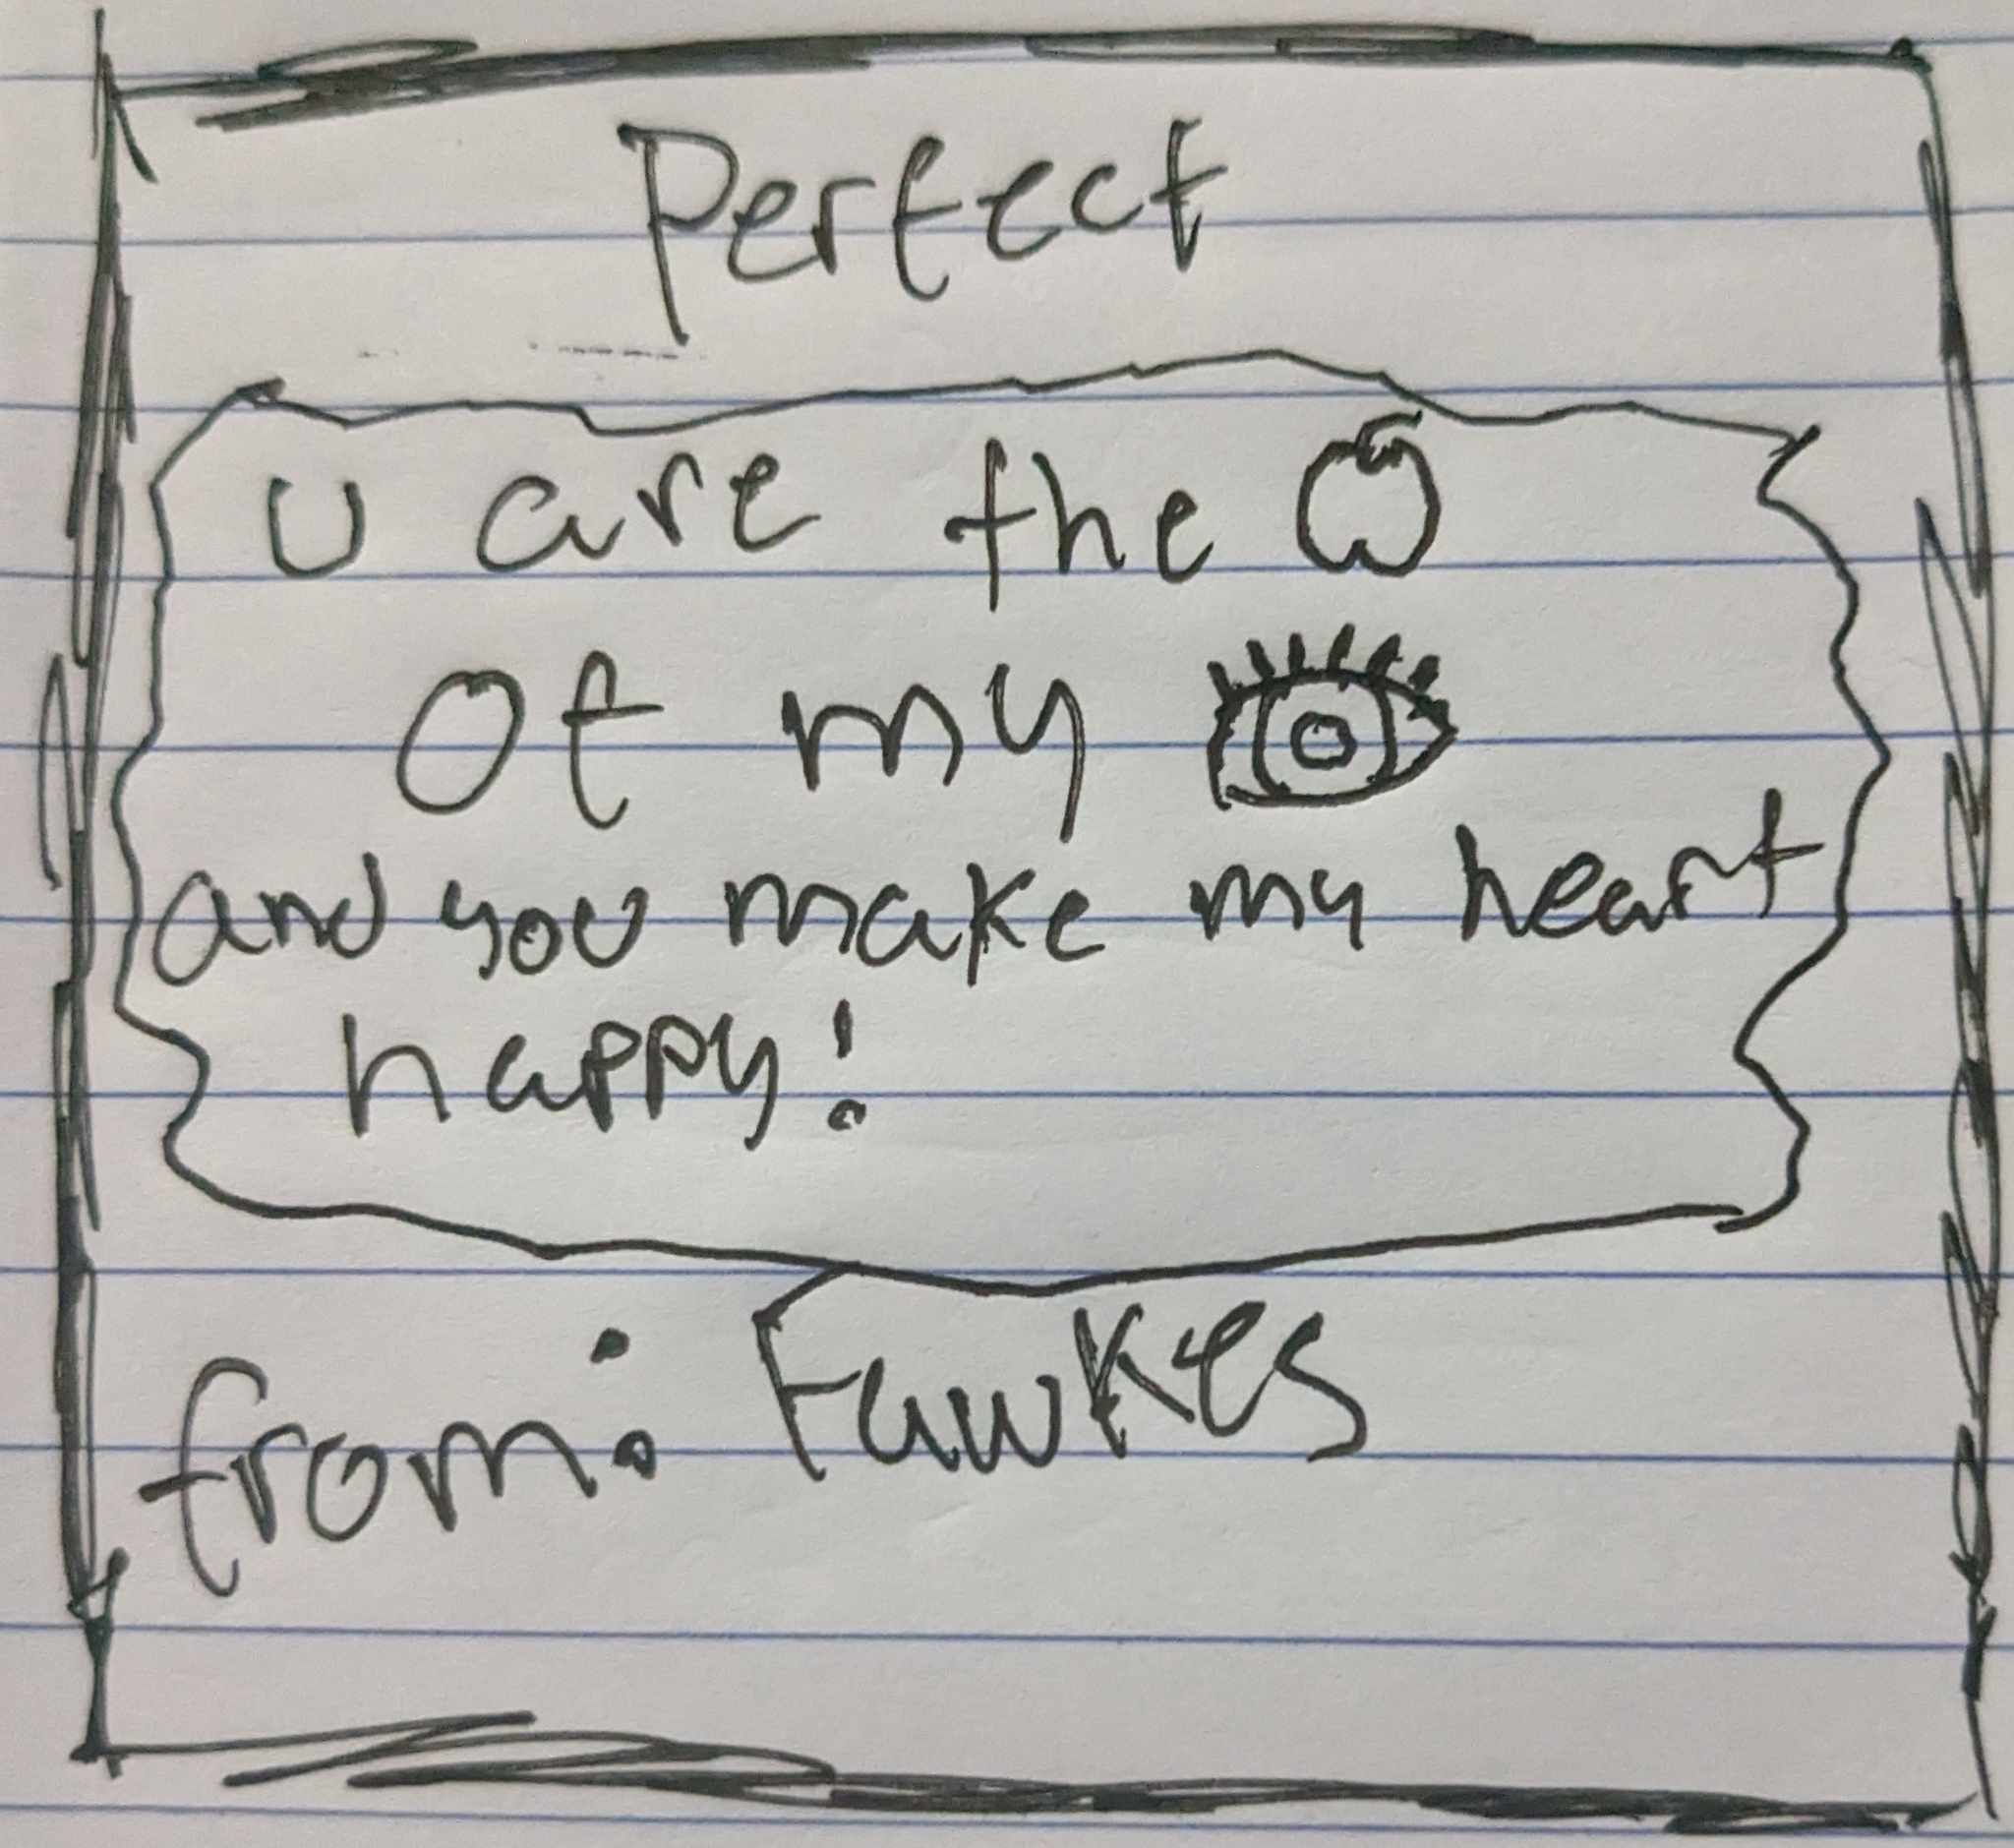 Perfect
U are the
Of my
and you make my heart
happy!
from: Fawkes